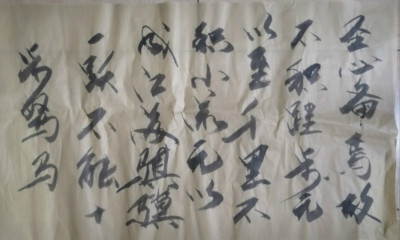 圣心备焉故
不积跬步无
以至千里不
积小流无以
成江海骐骥
一跃不能十
步驽马